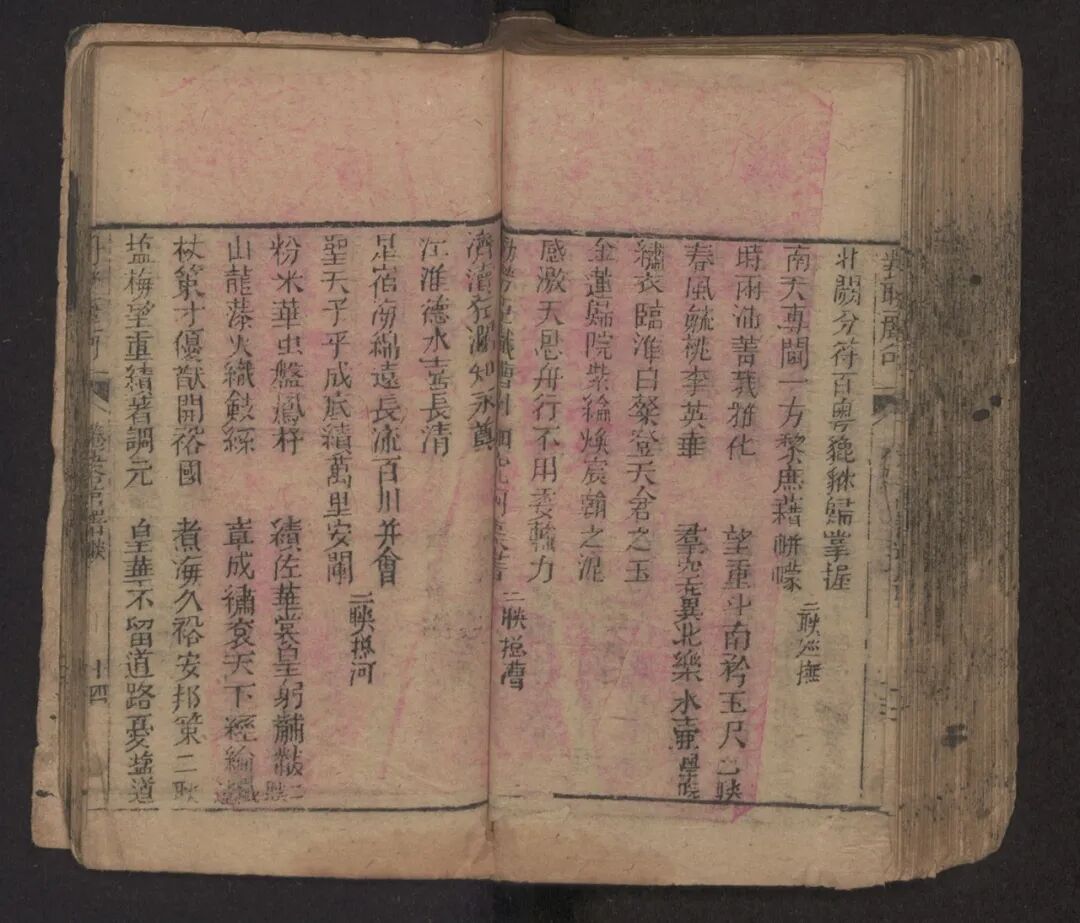 北闕分符百粵貔貅歸掌握
南天專閫一方黎庶藉帡幪
二聯巡撫
時雨沛菁莪雅化
望重斗南衿玉尺
二聯
春風毓桃李英華
羣空冀北樂水壺
學院
繡衣臨淮白槳登天倉之玉
金蓮歸院紫綸煥宸翰之泥
感激天恩舟行不用委輸力
二聯總漕
濟瀆狂瀾知永奠
江淮德水喜長清
星宿南綿遠長流百川并會
聖天子平成底績萬里安瀾
二聯總河
粉米華虫盤鳳杼
績佐華裳皇躬黼黻
二聯
山龍藻火織鮫絲
章成繡袞天下經綸
織造
杖策才優猷開裕國
煮海久裕安邦策
二聯
塩梅望重績著調元
皇華不留道路憂
塩道
十四